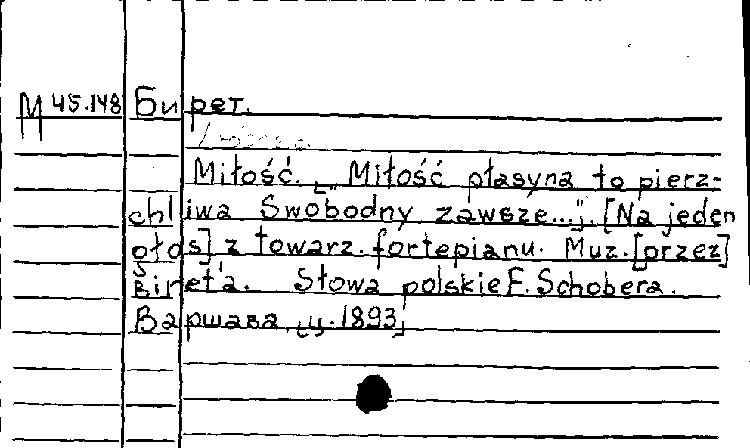 М 45.148 Бирет.
Miłość. „Miłość ptasyna to pierz-
chliwa Swobodny zawsze...". [Na jeden
głos] z towarz. fortepianu. Muz. [przez]
Biret'a. Słowa polskie F. Schobera.
Варшава, ц. 1893